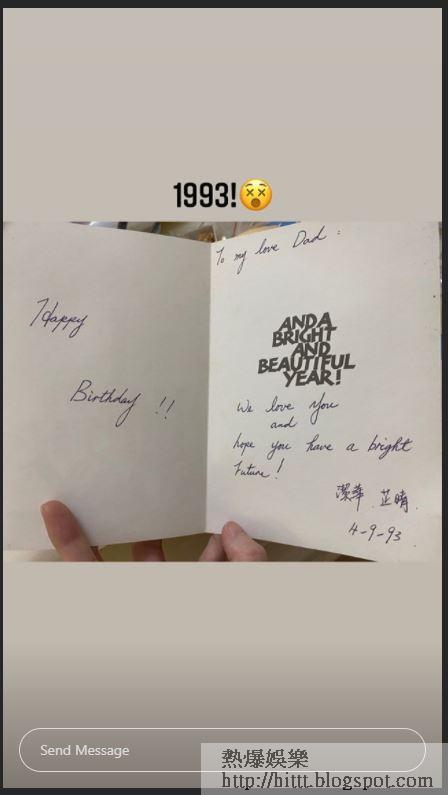 1993!😵
To my love Dad :
Happy
Birthday !!
AND A
BRIGHT
AND
BEAUTIFUL
YEAR!
We love you
and
hope you have a bright
Future!
潔華 芷晴
4-9-93
Send Message
熱爆娛樂
http://hittt.blogspot.com